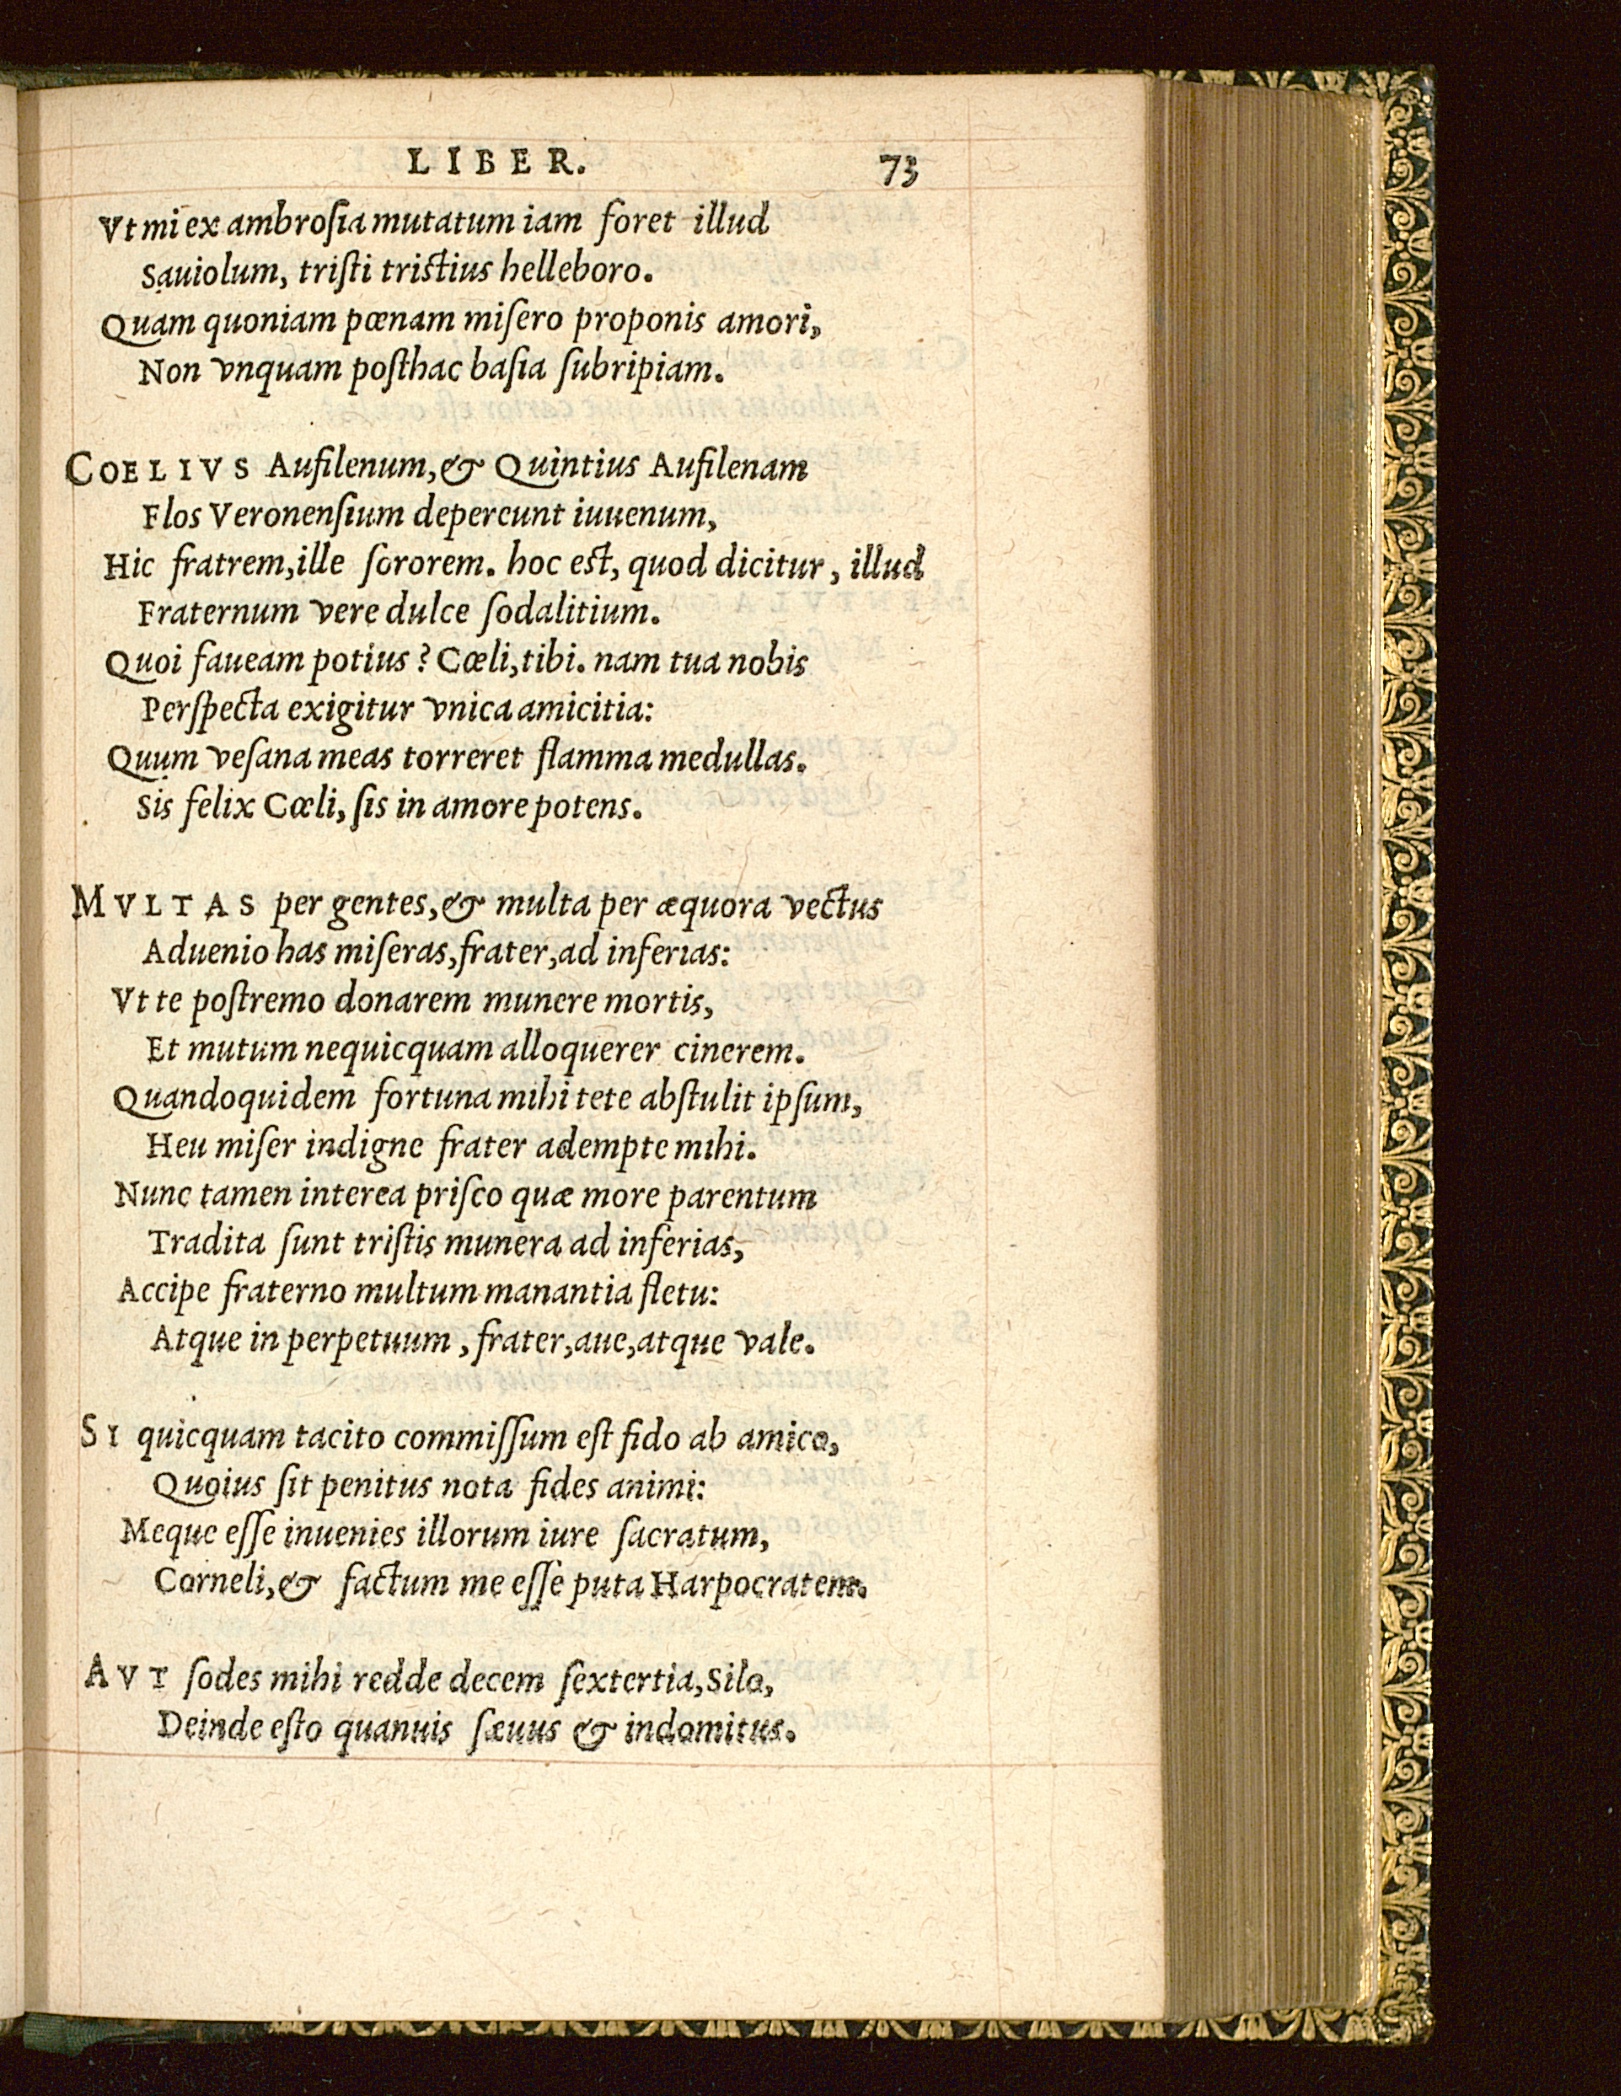 LIBER. 73
Vt mi ex ambroſia mutatum iam foret illud
Sauiolum, triſti tristius helleboro.
Quam quoniam pœnam miſero proponis amori,
Non vnquam posthac baſia ſubripiam.
COELIVS Aufilenum, & Quintius Aufilenam
Flos Veronenſium depereunt iuuenum,
Hic fratrem, ille ſororem. hoc est, quod dicitur, illud
Fraternum vere dulce ſodalitium.
Quoi faueam potius? Cœli, tibi. nam tua nobis
Perſpecta exigitur vnica amicitia:
Quum veſana meas torreret flamma medullas.
Sis felix Cœli, ſis in amore potens.
MVLTAS per gentes, & multa per æquora vectus
Aduenio has miſeras, frater, ad inferias:
Vt te poſtremo donarem munere mortis,
Et mutum nequicquam alloquerer cinerem.
Quandoquidem fortuna mihi tete abſtulit ipſum,
Heu miſer indigne frater adempte mihi.
Nunc tamen interea priſco quæ more parentum
Tradita ſunt triſtis munera ad inferias,
Accipe fraterno multum manantia fletu:
Atque in perpetuum, frater, aue, atque vale.
SI quicquam tacito commiſſum eſt fido ab amico,
Quoius ſit penitus nota fides animi:
Meque eſſe inuenies illorum iure ſacratum,
Corneli, & factum me eſſe puta Harpocratem.
AVT ſodes mihi redde decem ſextertia, Silo,
Deinde eſto quanuis ſæuus & indomitus.